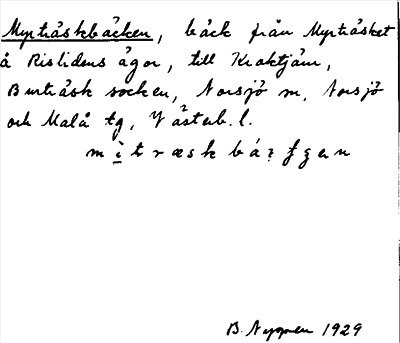 Myrträskbäcken, bäck från Myrträsket
å Risliden's ägor, till Kroktjärn,
Burträsk socken, Norsjö m, Norsjö
och Malå tg, Västerb. l.
B. Nygren 1929